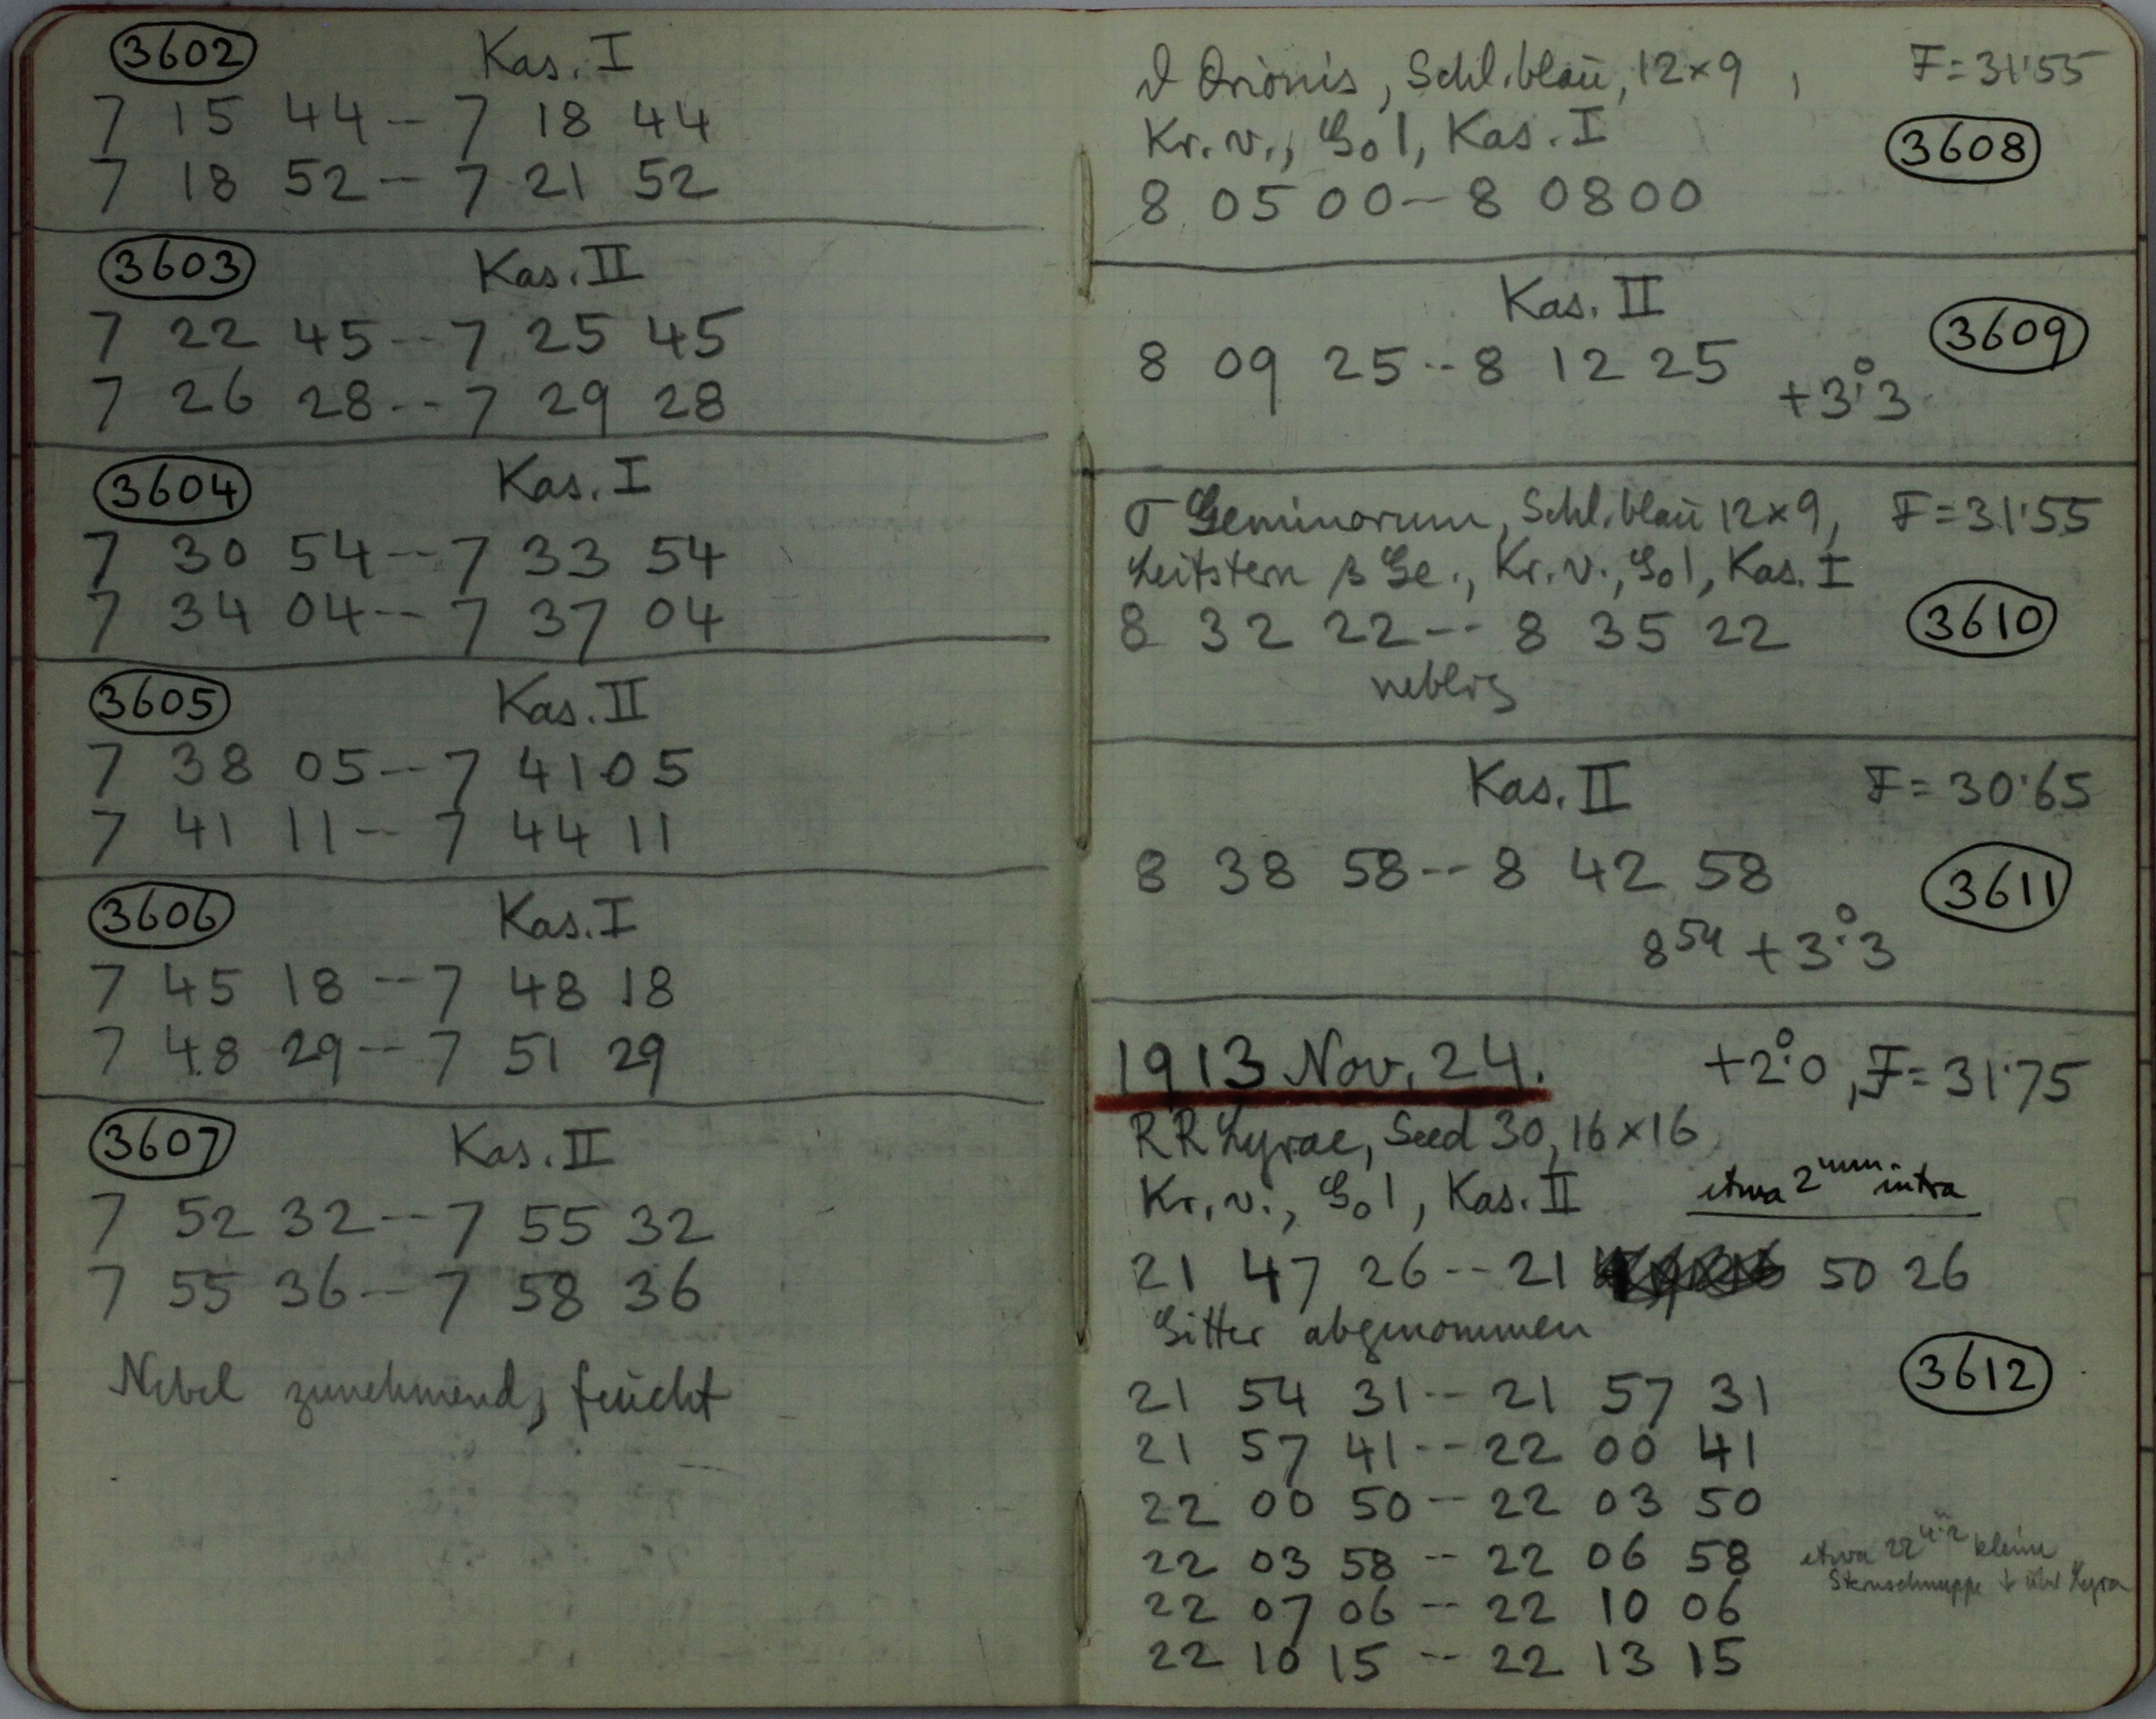 3602 Kas. I
7 15 44 -- 7 18 44
7 18 52 -- 7 21 52
3603 Kas. II
7 22 45 -- 7 25 45
7 26 28 -- 7 29 28
3604 Kas. I
7 30 54 -- 7 33 54
7 34 04 -- 7 37 04
3605 Kas. II
7 38 05 -- 7 41 05
7 41 11 -- 7 44 11
3606 Kas. I
7 45 18 -- 7 48 18
7 48 29 -- 7 51 29
3607 Kas. II
7 52 32 -- 7 55 32
7 55 36 -- 7 58 36
Nebel zunehmend, feucht
Orionis, Schl. blau, 12×9, F=31'55
Kr. v., G01, Kas. I
3608
8 05 00 -- 8 08 00
Kas. II
3609
8 09 25 -- 8 12 25
+3°.3
σ Geminorum, Schl. blau 12×9, F=31'55
Leitstern β Ge., Kr. v., G01, Kas. I
8 32 22 -- 8 35 22 3610
neblig
Kas. II F=30'65
8 38 58 -- 8 42 58 3611
8 54 +3°.3
1913 Nov. 24. +2°.0, F=31'75
RR Lyrae, Seed 30, 16×16
Kr. v., G01, Kas. II etwa 2mm intra
21 47 26 -- 21 50 26
Gitter abgenommen
3612
21 54 31 -- 21 57 31
21 57 41 -- 22 00 41
22 00 50 -- 22 03 50
22 03 58 -- 22 06 58 etwa 22 kleine
Sternschnuppe ↓ über Lyra
22 07 06 -- 22 10 06
22 10 15 -- 22 13 15